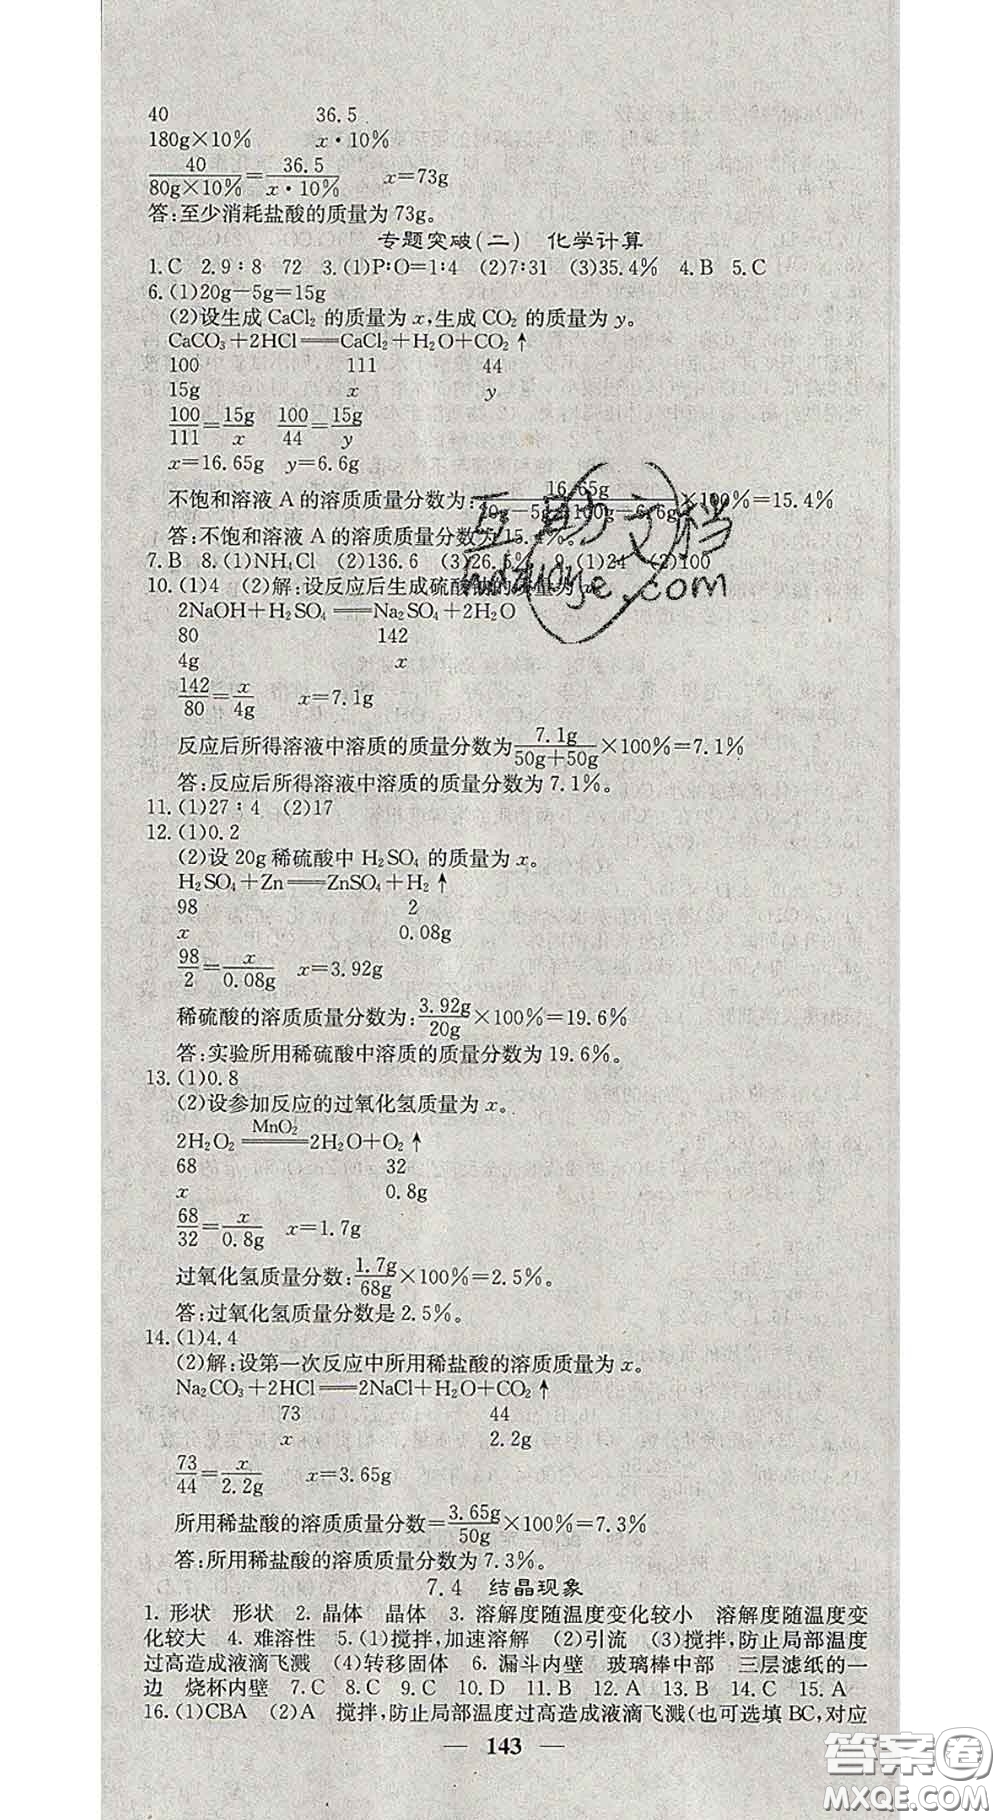 40 36.5
180g×10% x·10%
40/80g×10%=36.5/x·10% x=73g
答:至少消耗盐酸的质量为73g。
专题突破(二) 化学计算
1.C 2.9∶8 72 3.(1)P:O=1:4 (2)7:31 (3)35.4% 4.B 5.C
6.(1)20g-5g=15g
(2)设生成CaCl₂的质量为x,生成CO₂的质量为y。
CaCO₃+2HCl══CaCl₂+H₂O+CO₂↑
100 111 44
15g x y
100/111=15g/x 100/44=15g/y
x=16.65g y=6.6g
不饱和溶液A的溶质质量分数为:16.65g/20g-5g+100g-6.6g×100%=15.4%
答:不饱和溶液A的溶质质量分数为15.4%。
7.B 8.(1)NH₄Cl (2)136.6 (3)26.5% 9.(1)24 (2)100
10.(1)4 (2)解:设反应后生成硫酸钠的质量为x。
2NaOH+H₂SO₄══Na₂SO₄+2H₂O
80 142
4g x
142/80=x/4g x=7.1g
反应后所得溶液中溶质的质量分数为7.1g/50g+50g×100%=7.1%
答:反应后所得溶液中溶质的质量分数为7.1%。
11.(1)27∶4 (2)17
12.(1)0.2
(2)设20g稀硫酸中H₂SO₄的质量为x。
H₂SO₄+Zn══ZnSO₄+H₂↑
98 2
x 0.08g
98/2=x/0.08g x=3.92g
稀硫酸的溶质质量分数为:3.92g/20g×100%=19.6%
答:实验所用稀硫酸中溶质的质量分数为19.6%。
13.(1)0.8
(2)设参加反应的过氧化氢质量为x。
2H₂O₂ MnO₂══2H₂O+O₂↑
68 32
x 0.8g
68/32=x/0.8g x=1.7g
过氧化氢质量分数:1.7g/68g×100%=2.5%。
答:过氧化氢质量分数是2.5%。
14.(1)4.4
(2)解:设第一次反应中所用稀盐酸的溶质质量为x。
Na₂CO₃+2HCl══2NaCl+H₂O+CO₂↑
73 44
x 2.2g
73/44=x/2.2g x=3.65g
所用稀盐酸的溶质质量分数=3.65g/50g×100%=7.3%
答:所用稀盐酸的溶质质量分数为7.3%。
7.4 结晶现象
1.形状 形状 2.晶体 晶体 3.溶解度随温度变化较小 溶解度随温度变
化较大 4.难溶性 5.(1)搅拌,加速溶解 (2)引流 (3)搅拌,防止局部温度
过高造成液滴飞溅 (4)转移固体 6.漏斗内壁 玻璃棒中部 三层滤纸的一
边 烧杯内壁 7.C 8.C 9.C 10.D 11.B 12.A 13.B 14.C 15.A
16.(1)CBA (2)A 搅拌,防止局部温度过高造成液滴飞溅(也可选填BC,对应
— 143 —
互助文档
hdzuoye.com
答案圈
MXQE.COM